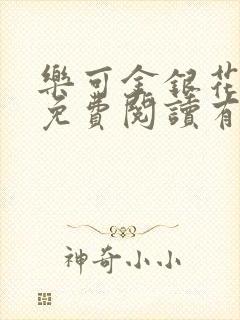 樂可金銀花
免費閱讀有
神奇小小